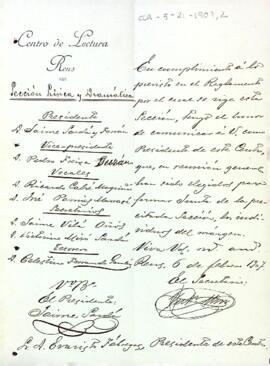 CLA-5-2-1907, 2
Centro de Lectura
Reus
Sección Lírica y Dramática
Presidente
D. Jaime Sardá y Ferrán
Vice-presidente
D. Pedro
Vocales
D. Ricardo
D. José
Secretarios
D. Jaime Vilá
D. Victorino
Tesorero
D. Celestino
Vº Bº
El Presidente
Jaime Sardá
En cumplimiento á lo
previsto en el Reglamento
por el cual se rige esta
Sección, tengo el honor
de comunicar á V. como
Presidente de este Centro,
que, en reunión general
han sido elegidos para
formar Junta de la pre-
citada Sección, los indi-
viduos del márgen.
Viva Vd. mº añoˢ
Reus, 6 de febrero 1907
El Secretario
Sr. D. Evaristo Fábregas, Presidente de este Centro